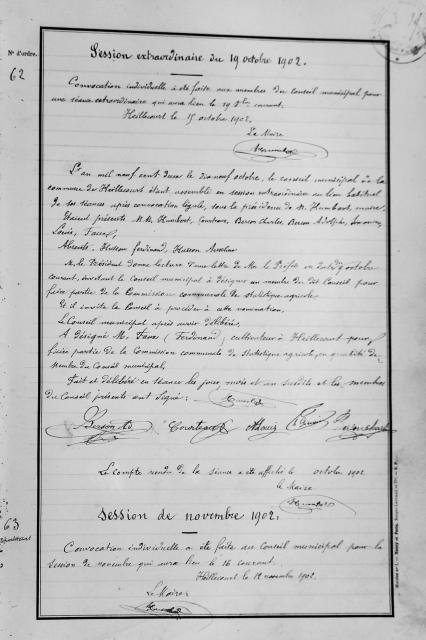 N° d'ordre.
62
Session extraordinaire du 19 octobre 1902.
Convocation individuelle a été faite aux membres du Conseil municipal pour
une séance extraordinaire qui aura lieu le 19 8bre courant.
Heillecourt le 15 octobre 1902.
Le Maire
Humbert
L'an mil neuf cent deux le dix neuf octobre, le conseil municipal de la
commune de Heillecourt étant assemblé en session extraordinaire au lieu habituel
de ses séances après convocation légale, sous la présidence de M. Humbert, maire.
Etaient présents M.M. Humbert, Courteaux, Berson Charles, Berson Adolphe,
Louis, Favet,
Absents, Husson Ferdinand, Husson
M. le Président donne lecture d'une lettre de Mr le Préfet en date du octobre
courant, invitant le Conseil municipal à désigner un membre du dit Conseil pour
faire partie de la Commission communale de statistique agricole.
Et il invite le Conseil à procéder à cette nomination.
Le Conseil municipal après avoir délibéré,
A désigné M. Favet (Ferdinand), cultivateur à Heillecourt pour
faire partie de la Commission communale de statistique agricole, en qualité de
Membre du Conseil municipal,
Fait et délibéré en séance les jour, mois et an susdits et les membres
du Conseil présents ont signé:
Humbert
Berson Ad Courteaux
Le compte rendu de la séance a été affiché le octobre 1902
Le Maire
Humbert
63
Session de novembre 1902.
Convocation individuelle a été faite au Conseil municipal pour la
session de novembre qui aura lieu le 16 courant.
Heillecourt le 12 novembre 1902.
Le Maire
Humbert